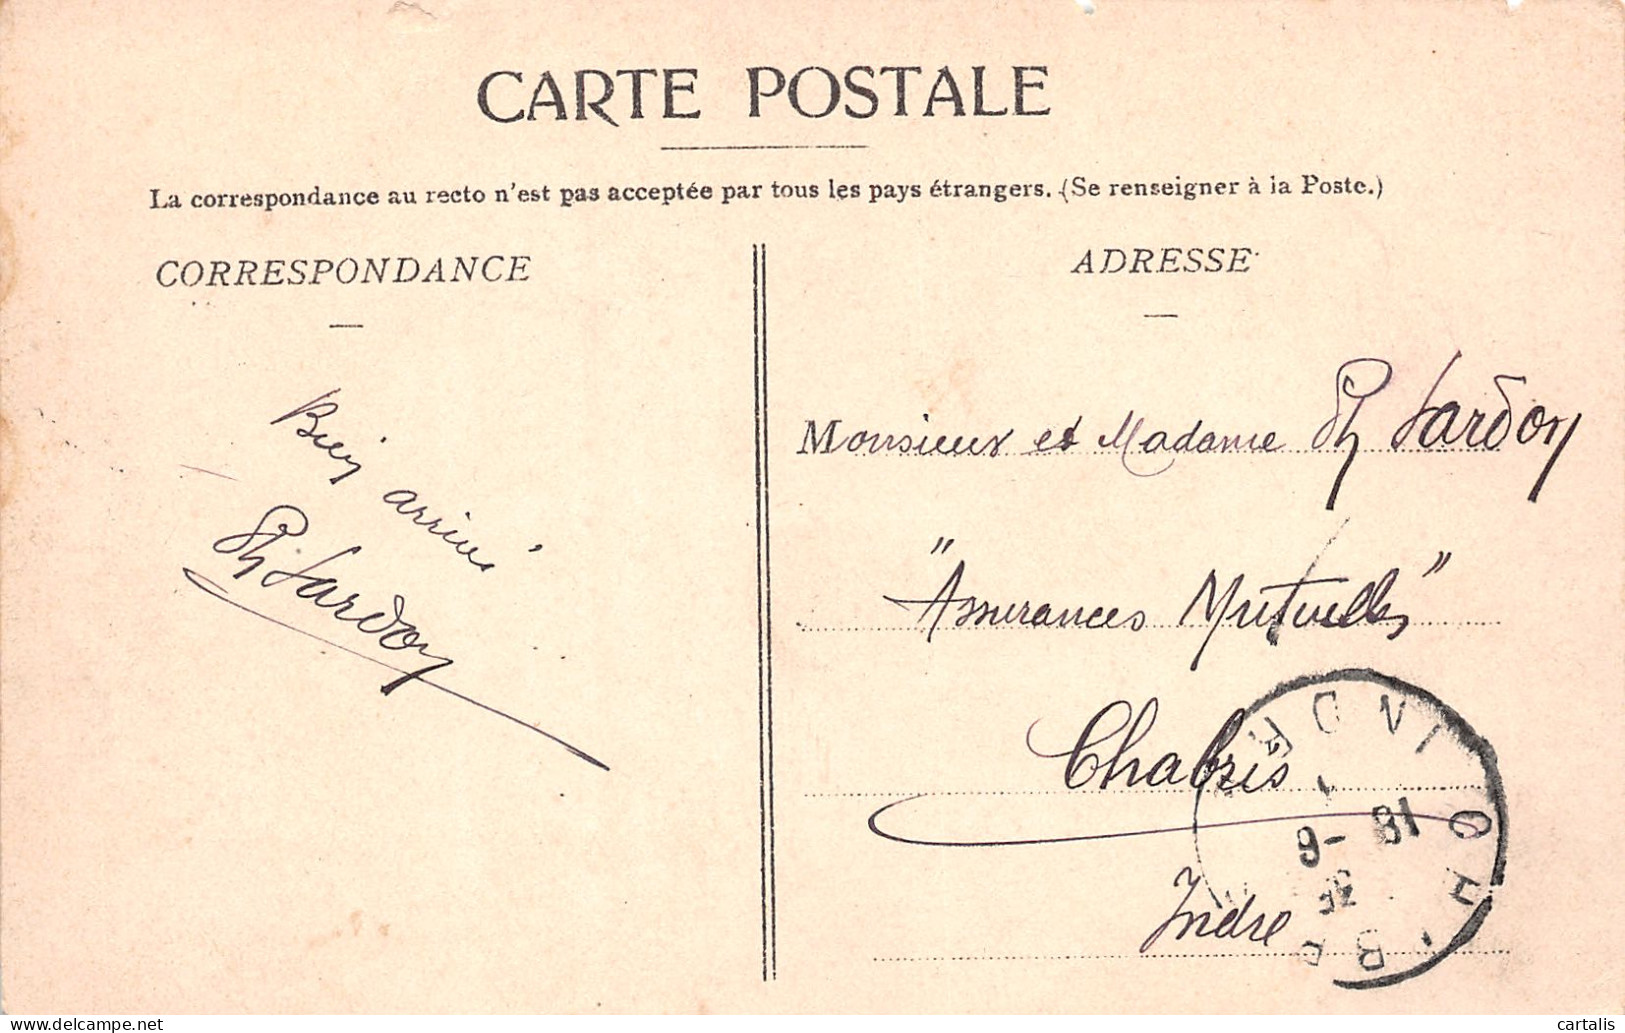 CARTE POSTALE
La correspondance au recto n'est pas acceptée par tous les pays étrangers. (Se renseigner à la Poste.)
CORRESPONDANCE
Bien arrivé
Ph Sardon
ADRESSE
Monsieur et Madame Ph Sardon
"Assurances Mutuelles"
Chabris
Indre
INDRE
18 -6
cartalis